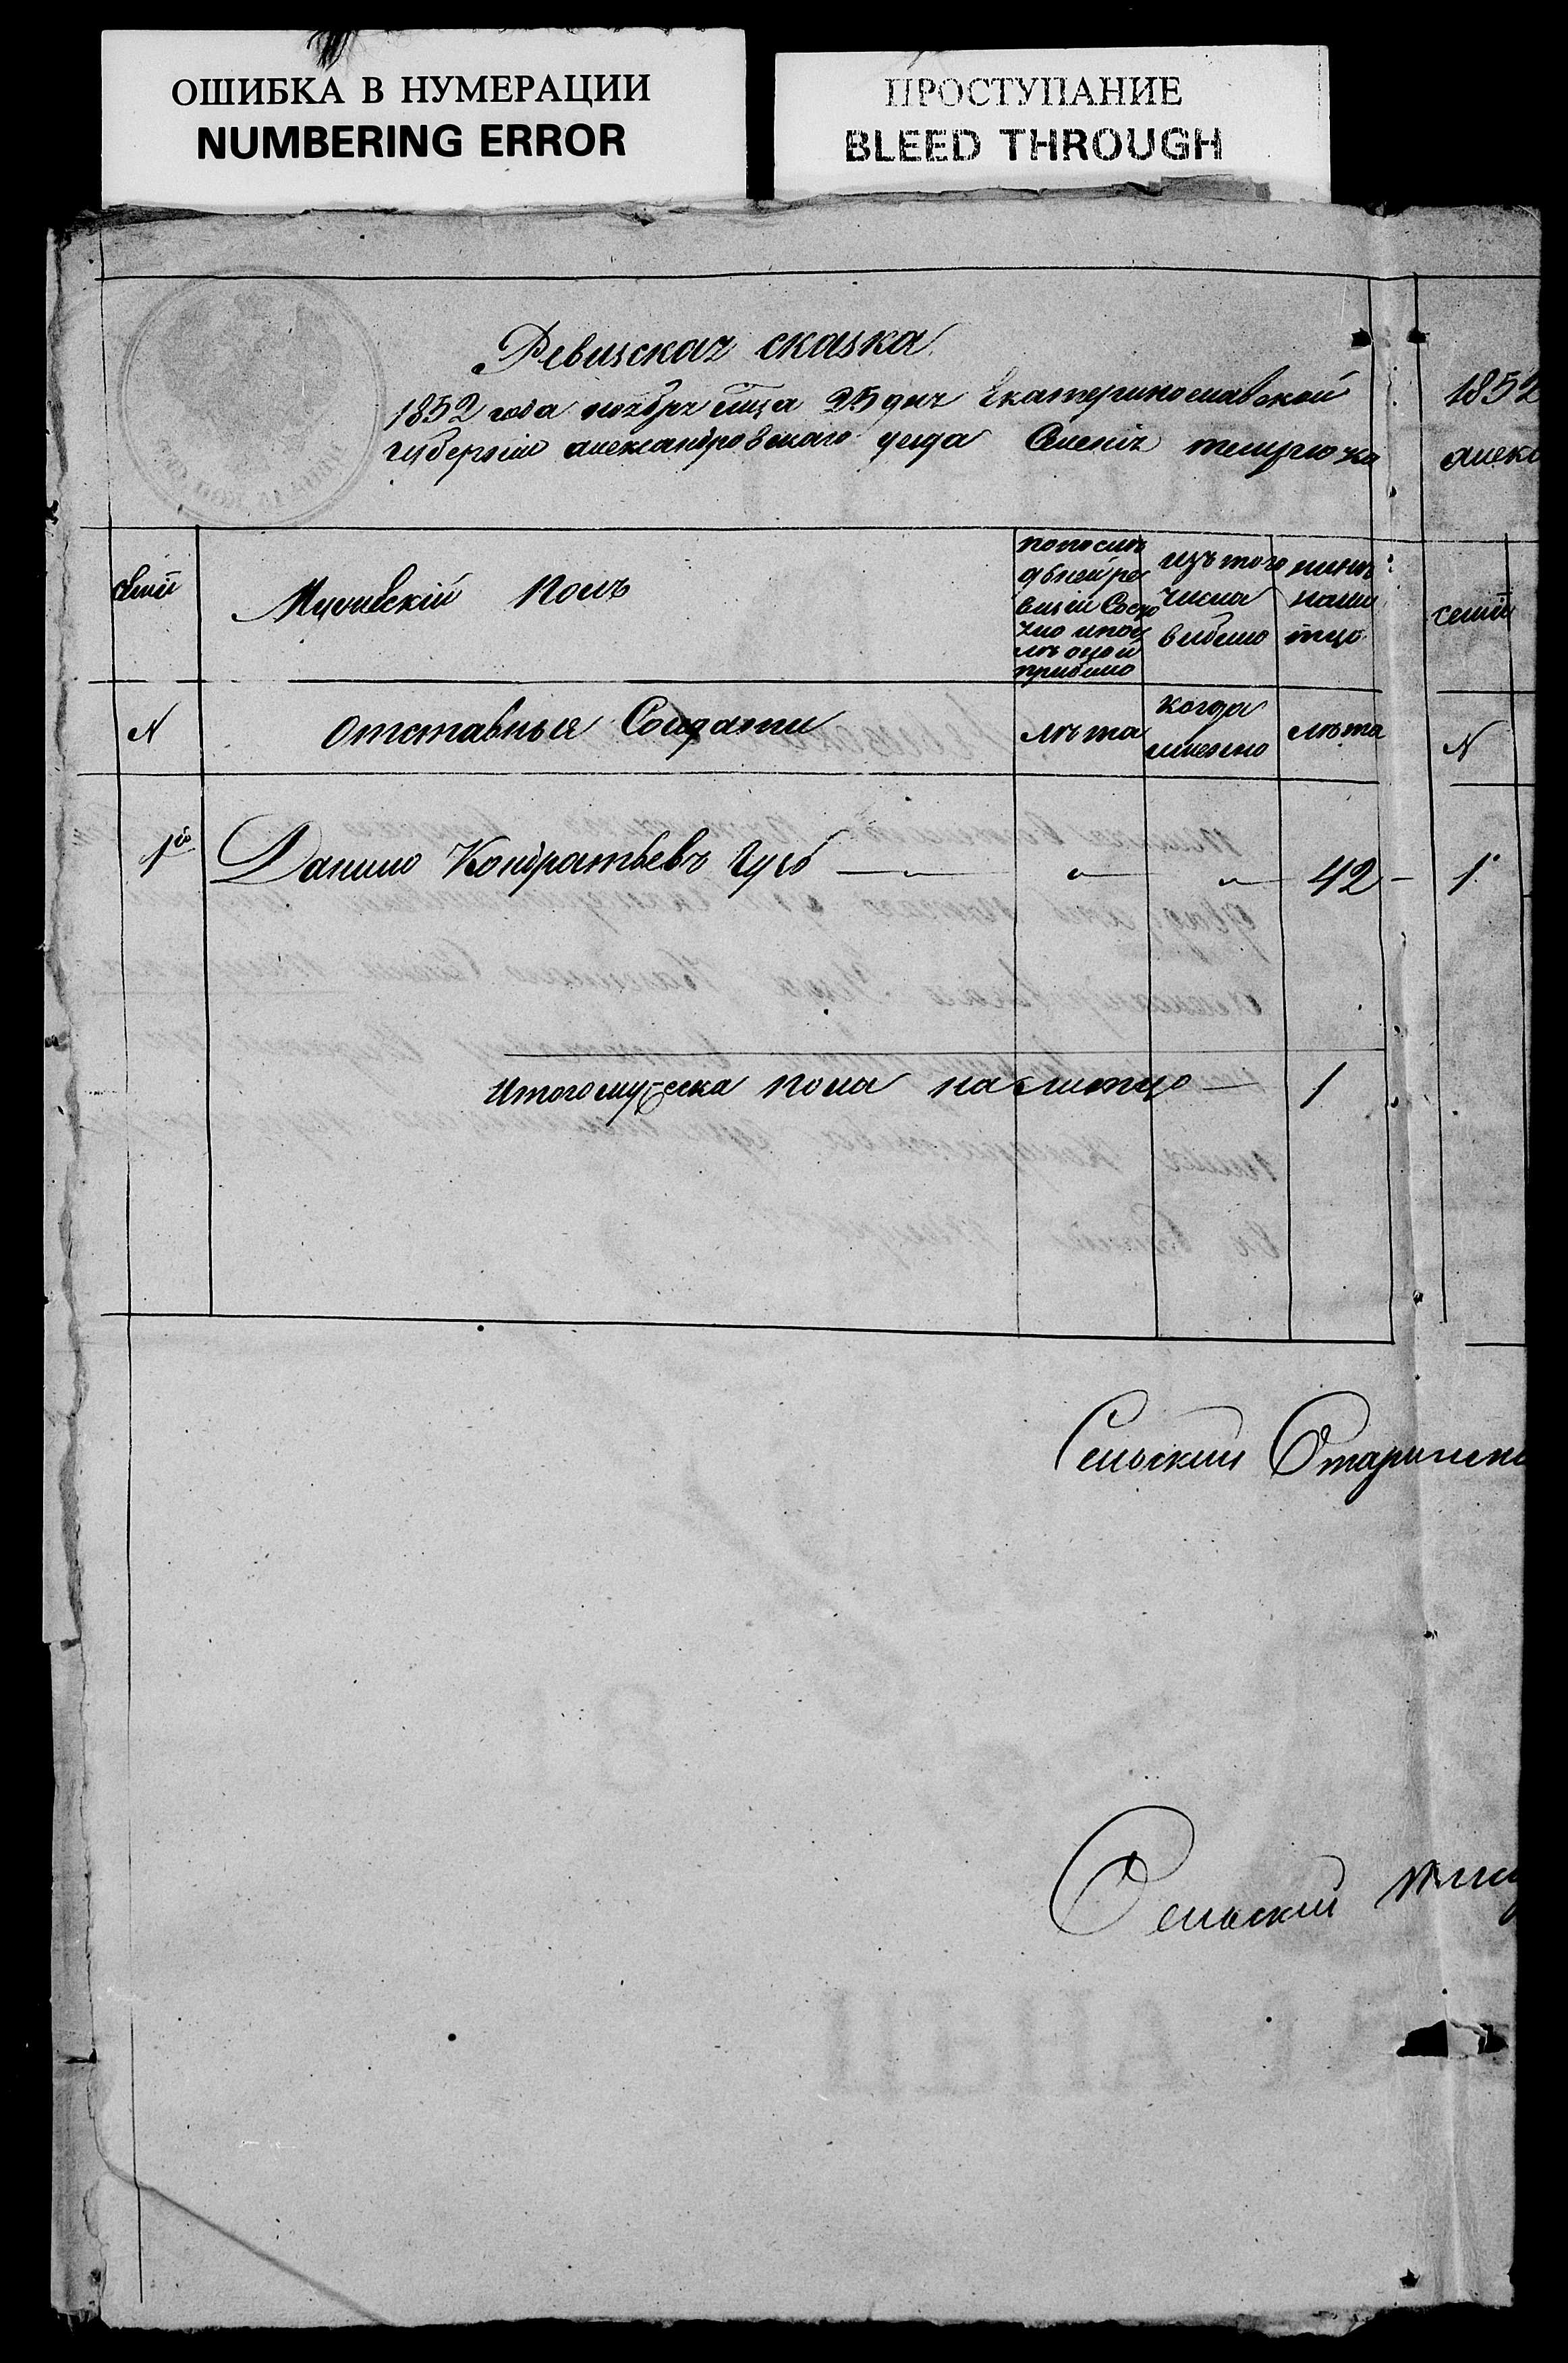 ОШИБКА В НУМЕРАЦИИ
NUMBERING ERROR
ПРОСТУПАНИЕ
BLEED THROUGH
Ревизская сказка
1852 года ноября мца 25 дня Екатеринославской
губернии александровскаго уезда Селения темрюка
семей
Мужеский полъ
по послѣ
дьней ре
визіи Состо
яло и пос
лѣ оной
прибыло
изъ того
числа
выбыло
нине
нали
тцо
N
отставные Солдати
лѣта
когда
именно
лѣта
1й
Данило Кондратьевъ Губ
"
"
42
Итого мужеска пола налитцо
1
Сельский Старшин
Сельский
1852
алекс
семей
N
1